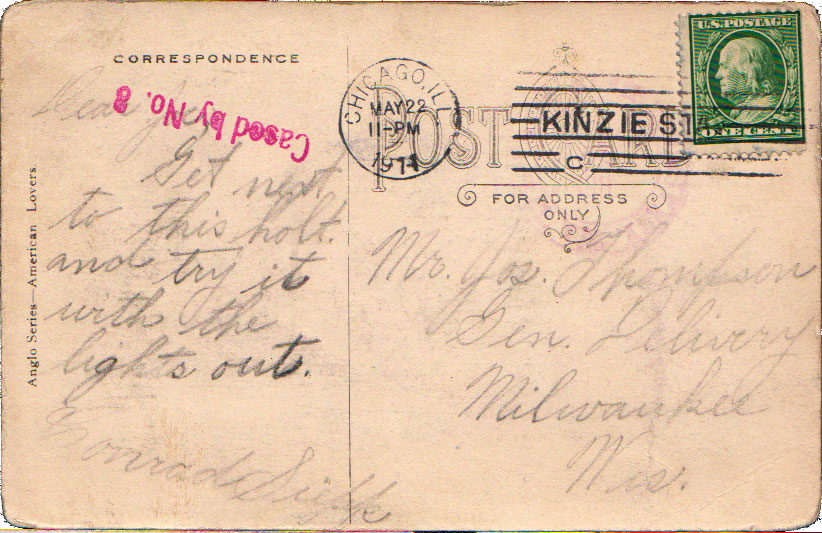 CORRESPONDENCE
Dear
Cased by No. 8
Get next
to this holt.
and try it
with the
lights out.
Konrad
Anglo Series—American Lovers
CHICAGO, ILL
MAY 22
11-PM
1911
KINZIE STA
C
U.S. POSTAGE
ONE CENT
POST CARD
FOR ADDRESS
ONLY
Mr. Jos. Thompson
Gen. Delivery
Milwaukee
Wis.